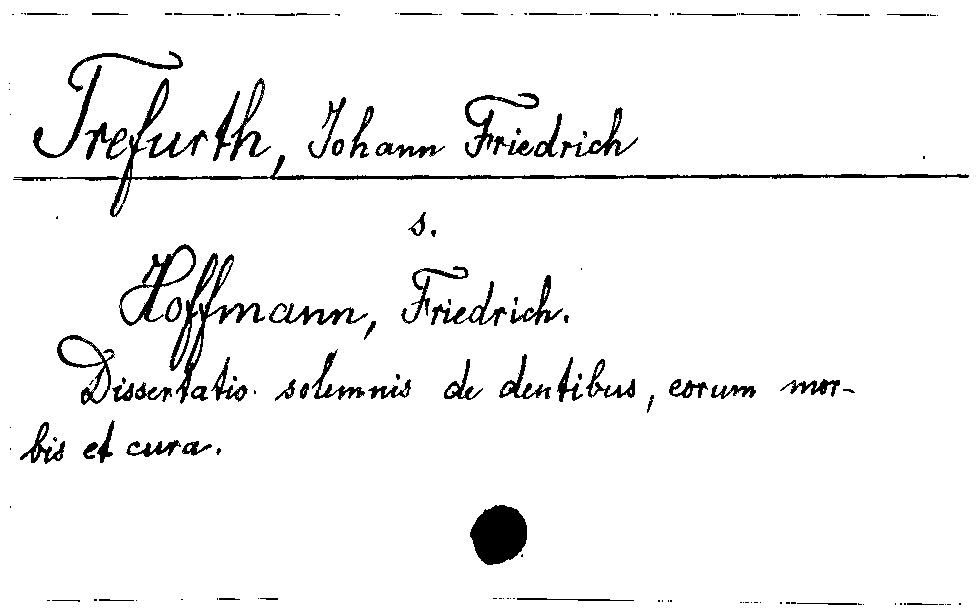 Trefurth, Johann Friedrich
s.
Hoffmann, Friedrich.
Dissertatio solemnis de dentibus, eorum mor-
bis et cura.